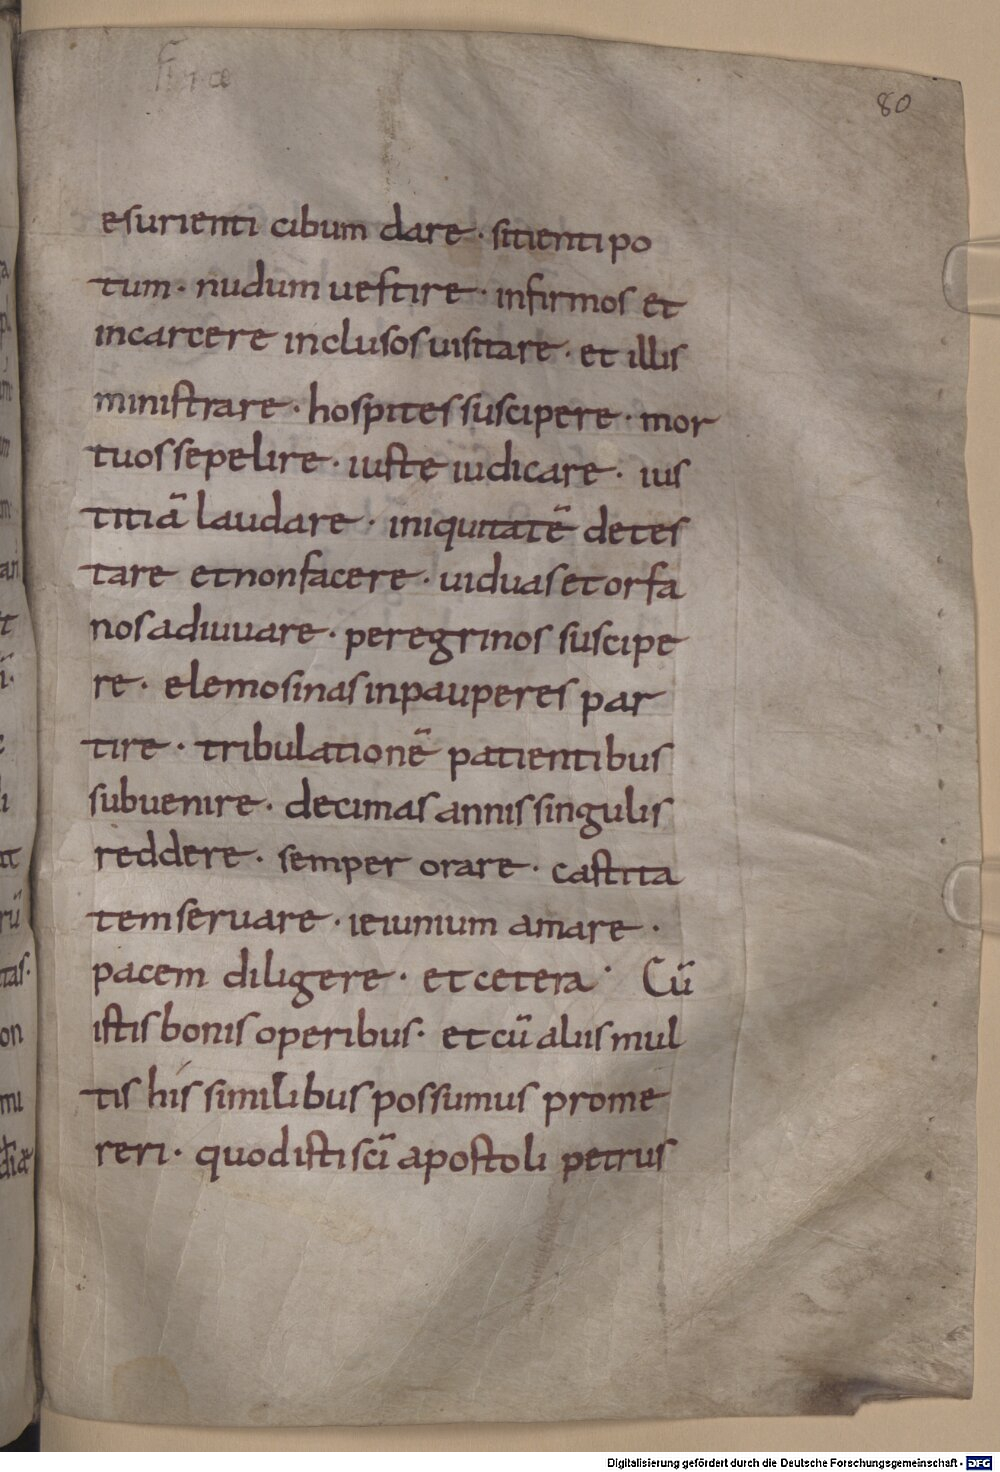 80
esurienti cibum dare · sitienti po
tum · nudum uestire · infirmos et
incarcere inclusos uisitare · et illis
ministrare · hospites suscipere · mor
tuos sepelire · iuste iudicare · ius
titiā laudare · iniquitatē detes
tare et non facere · uiduas et orfa
nos adiuuare · peregrinos suscipe
re · elemosinas in pauperes par
tire · tribulationē patientibus
subuenire · decimas annis singulis
reddere · semper orare · castita
tem seruare · ieiunium amare ·
pacem diligere · et cetera · Cū
istis bonis operibus · et cū aliis mul
tis his similibus possumus prome
reri · quod isti sc̄i apostoli petrus
Digitalisierung gefördert durch die Deutsche Forschungsgemeinschaft · DFG